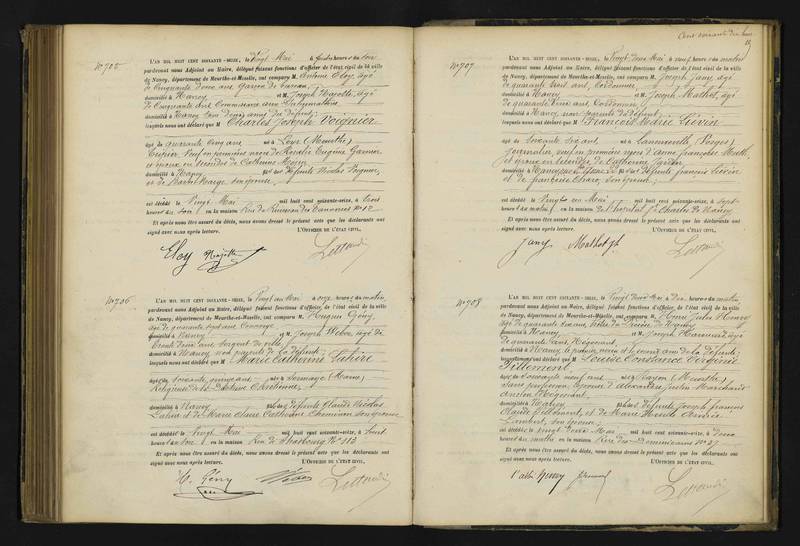 Nº 705
L'AN MIL HUIT CENT SOIXANTE-SEIZE, le Vingt Mai à quatre heures du soir
pardevant nous Adjoint au Maire, délégué faisant fonctions d'officier de l'état civil de la ville
de Nancy, département de Meurthe-et-Moselle, ont comparu M. Antoine Eloy, âgé
de Cinquante deux ans, Garçon de
domicilié à Nancy et M. Joseph Majotte, âgé
de Cinquante ans Commissaire aux Inhumations
domicilié à Nancy, amis du défunt;
lesquels nous ont déclaré que M Charles Joseph Voignier
âgé de quarante cinq ans né à (Meurthe)
Veuf en premières noces de Rosalie Eugénie Garnier
et époux en secondes de Catherine
domicilié à Nancy fils des défunts Nicolas Voignier
et de son épouse
est décédé le Vingt Mai mil huit cent soixante-seize, à trois
heures du soir en la maison Rue du Ruisseau des Chanoines Nº 12
Et après nous être assuré du décès, nous avons dressé le présent acte que les déclarants ont
signé avec nous après lecture. L'OFFICIER DE L'ÉTAT CIVIL,
Eloy Majotte
Nº 706
L'AN MIL HUIT CENT SOIXANTE-SEIZE, le Vingt un Mai à onze heures du matin
pardevant nous Adjoint au Maire, délégué faisant fonctions d'officier de l'état civil de la ville
de Nancy, département de Meurthe-et-Moselle, ont comparu M. Hugues Gény,
âgé de quarante sept ans Concierge
domicilié à Nancy et M. Joseph Weber, âgé de
trente deux ans, Sergent de ville
domicilié à Nancy non parents de la défunte;
lesquels nous ont déclaré que M Marie Catherine Latire
âgée de soixante ans née à Sermaize (Marne)
Religieuse de la Doctrine Chrétienne
domiciliée à Nancy fille des défunts Claude Nicolas
Latire et de Marie Claire Catherine son épouse
est décédée le Vingt Mai mil huit cent soixante-seize, à huit
heures du soir en la maison Rue de Strasbourg Nº 113
Et après nous être assuré du décès, nous avons dressé le présent acte que les déclarants ont
signé avec nous après lecture. L'OFFICIER DE L'ÉTAT CIVIL,
H. Gény Weber
Cent soixante dix
Nº 707
L'AN MIL HUIT CENT SOIXANTE-SEIZE, le Vingt deux Mai à neuf heures du matin
pardevant nous Adjoint au Maire, délégué faisant fonctions d'officier de l'état civil de la ville
de Nancy, département de Meurthe-et-Moselle, ont comparu M. Joseph Jany, âgé
de quarante huit ans, Cordonnier
domicilié à Nancy et M. Joseph Mathot, âgé
de quarante deux ans, Cordonnier
domicilié à Nancy, non parents du défunt;
lesquels nous ont déclaré que M François Marie Liévin
âgé de Soixante six ans né à (Vosges)
Journalier, veuf en premières noces d'Anne Françoise
et époux en secondes de Catherine Jardin
domicilié à fils des défunts François Liévin
et de Françoise son épouse
est décédé le Vingt un Mai mil huit cent soixante-seize, à sept
heures du matin en la maison de l'hôpital St Charles de Nancy
Et après nous être assuré du décès, nous avons dressé le présent acte que les déclarants ont
signé avec nous après lecture. L'OFFICIER DE L'ÉTAT CIVIL,
Jany Mathot Jh
Nº 708
L'AN MIL HUIT CENT SOIXANTE-SEIZE, le Vingt deux Mai à dix heures du matin
pardevant nous Adjoint au Maire, délégué faisant fonctions d'officier de l'état civil de la ville
de Nancy, département de Meurthe-et-Moselle, ont comparu M. Henri Jules Henry
âgé de quarante six ans, Prêtre du Diocèse de Nancy
domicilié à Nancy et M. Joseph âgé
de quarante ans, Négociant
domicilié à Nancy le premier neveu et le second ami de la défunte;
lesquels nous ont déclaré que M Louise Constance Virginie
Pillement
âgée de soixante neuf ans née à Bayon (Meurthe)
Sans profession, Epouse d'Alexandre Justin Marchand
Ancien Négociant
domiciliée à Nancy fille des défunts Joseph François
Claude Pillement, et de Marie
Lambert, son épouse
est décédée le Vingt deux Mai mil huit cent soixante-seize, à deux
heures du matin en la maison Rue des Dominicains Nº 37
Et après nous être assuré du décès, nous avons dressé le présent acte que les déclarants ont
signé avec nous après lecture. L'OFFICIER DE L'ÉTAT CIVIL,
l'abbé Henry